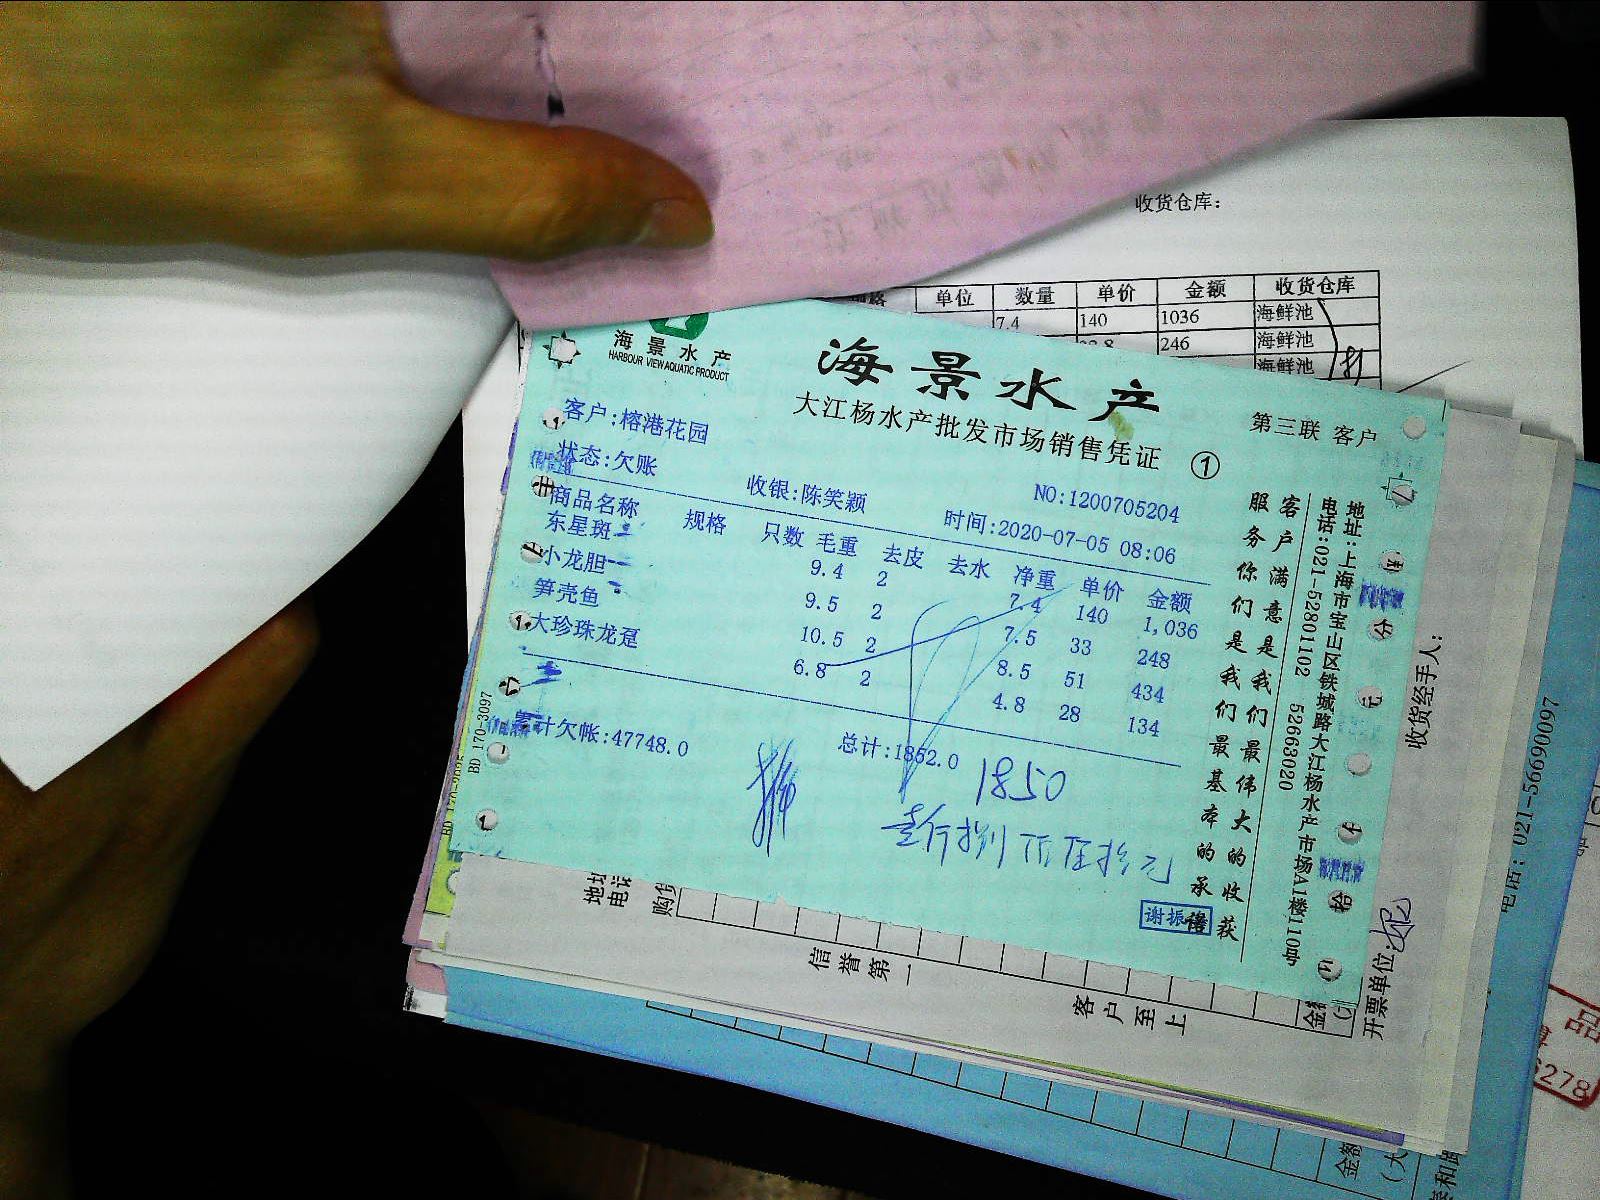 收货仓库：
单位 数量 单价 金额 收货仓库
7.4 140 1036 海鲜池
246 海鲜池
海鲜池
海景水产
HARBOUR VIEW AQUATIC PRODUCT
海景水产
大江杨水产批发市场销售凭证 ①
第三联 客户
客户:榕港花园
状态:欠账 收银:陈笑颖 NO:1200705204
时间:2020-07-05 08:06
商品名称 规格 只数 毛重 去皮 去水 净重 单价 金额
东星斑 9.4 2 7.4 140 1,036
小龙胆 9.5 2 7.5 33 248
笋壳鱼 10.5 2 8.5 51 434
大珍珠龙趸 6.8 2 4.8 28 134
累计欠帐:47748.0 总计:1852.0
1850
壹仟捌佰伍拾元
谢振
客户满意是我们最伟大的收获
服务你们是我们最基本的承
地址:上海市宝山区铁城路大江杨水产市场A楼110号
电话:021-52801102 52663020
BD 170-3097
收货经手人：
开票单位:
地址
电话
购货
信誉第一
客户至上
金额
电话：021-56690097
金额
(大
品
6278